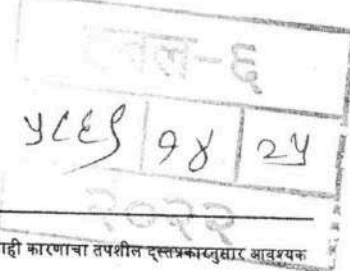 वल-६
५८६९ १४ २५
२०२२
ाही कारणाचा तपशील दस्तप्रकारनुसार आवश्यक